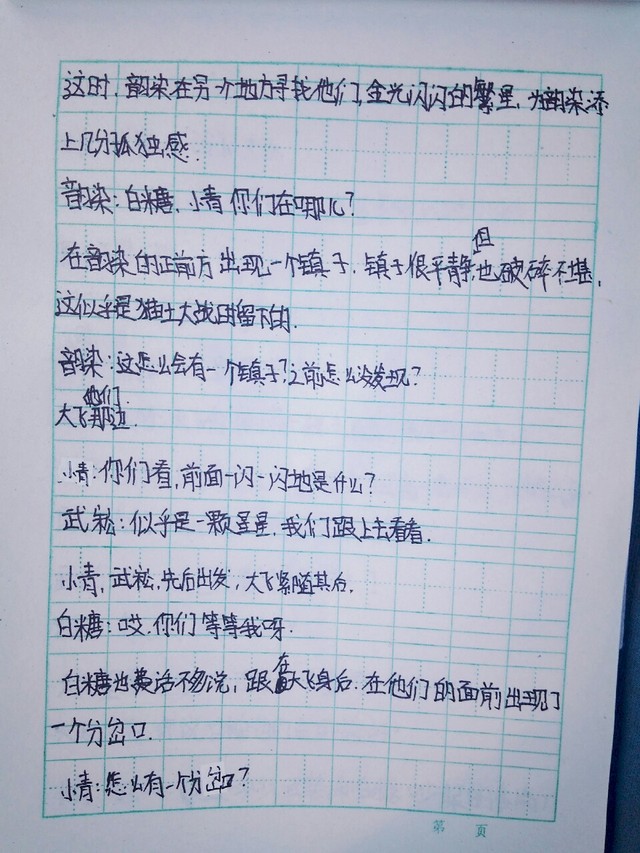 这时，韵染在另个地方寻找他们，金光闪闪的繁星，为韵染添
上几分孤独感.
韵染：白糖，小青你们在哪儿？
但
在韵染的正前方出现一个镇子，镇子很平静，也破碎不堪，
这似乎是猫土大战时留下的.
韵染：这怎么会有一个镇子？之前怎么没发现？
他们
大飞那边.
小青：你们看，前面一闪一闪地是什么？
武崧：似乎是一颗星星，我们跟上去看看.
小青，武崧，先后出发，大飞紧随其后.
白糖：哎，你们等等我呀.
在
白糖也费话不多说，跟大飞身后.在他们的面前出现了
一个分岔口.
小青：怎么有一个分岔口？
第 页